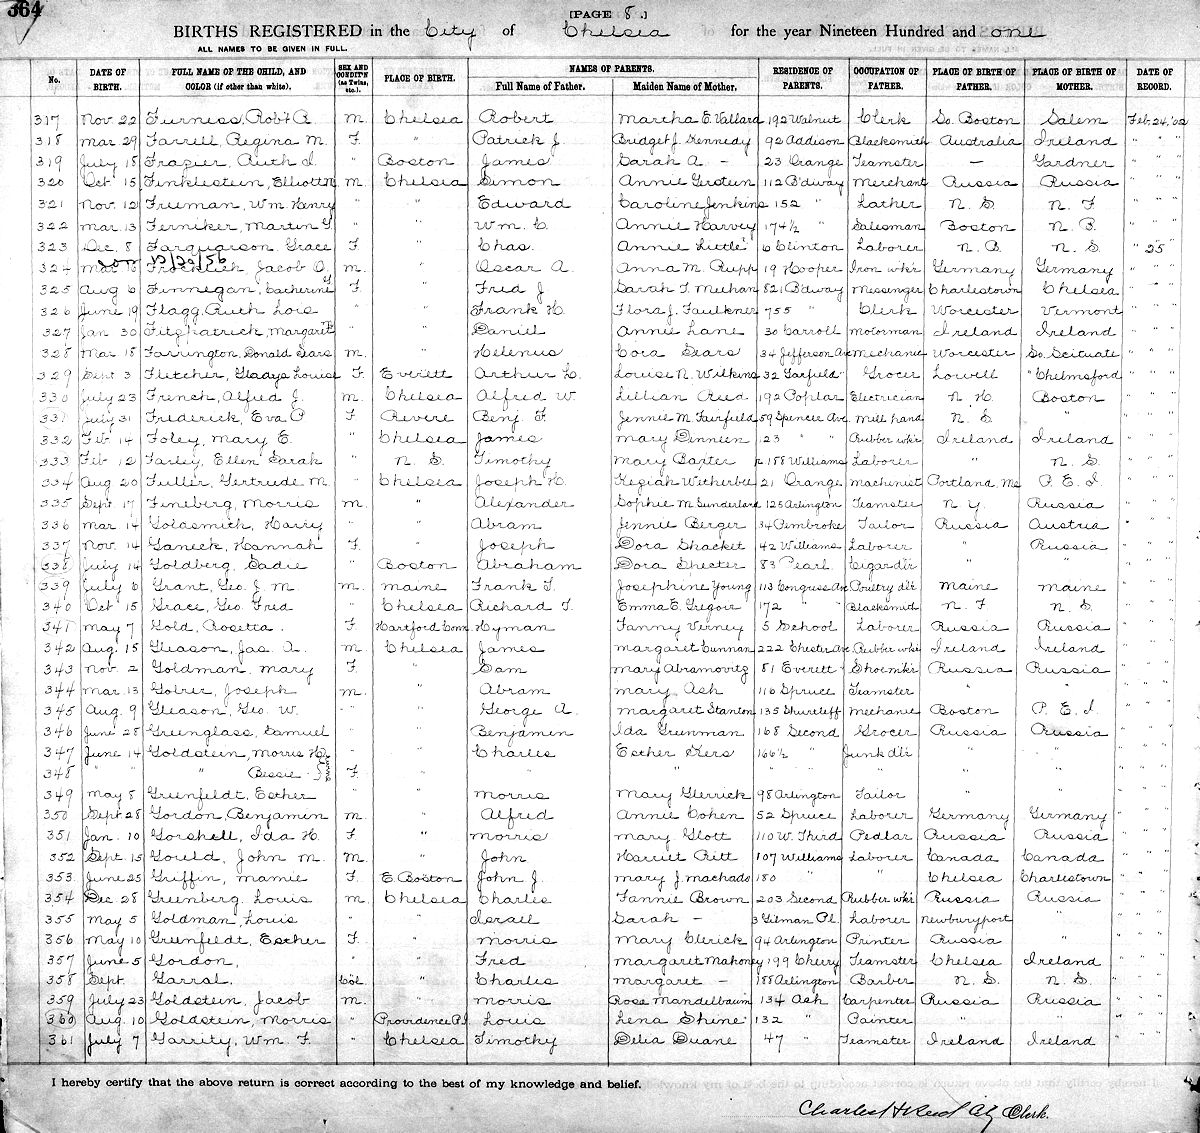 364
[PAGE 8.]
BIRTHS REGISTERED in the City of Chelsea for the year Nineteen Hundred and one
ALL NAMES TO BE GIVEN IN FULL.
No. DATE OF BIRTH. FULL NAME OF THE CHILD, AND COLOR (if other than white). SEX AND CONDIT'N (as Twins, etc.). PLACE OF BIRTH. NAMES OF PARENTS. Full Name of Father. Maiden Name of Mother. RESIDENCE OF PARENTS. OCCUPATION OF FATHER. PLACE OF BIRTH OF FATHER. PLACE OF BIRTH OF MOTHER. DATE OF RECORD.
317 Nov. 22 Furness, Robt A. M. Chelsea Robert Martha E. Vallard 192 Walnut Clerk So. Boston Salem Feb. 24, '02
318 Mar 29 Farrell, Regina M. F " Patrick J. Bridget J. Kennedy 92 Addison Blacksmith Australia Ireland " "
319 July 18 Frazier, Ruth I. " Boston James Sarah A. - 23 Orange Teamster - Gardner " "
320 Oct 15 Finklestein, Elliott M. Chelsea Simon Annie Gerstein 112 B'dway Merchant Russia Russia " "
321 Nov. 12 Freeman, Wm Henry " " Edward Caroline Jenkins 152 " Lather N. S. N. F. " "
322 Mar. 13 Ferniker, Martin G. " " Wm. C. Annie Harvey 174½ " Salesman Boston N. B. " "
323 Dec. 8 Farquarson, Grace F " Chas. Annie Little 6 Clinton Laborer N. B. N. S. " 25
12/20/56
324 Mar 16 Froehlich, Jacob O. M. " Oscar A. Anna M. Rupp 19 Hooper Iron wk'r Germany Germany " "
325 Aug 6 Finnegan, Catherine F. F. " Fred J. Sarah T. Meehan 821 B'dway Messenger Charlestown Chelsea " "
326 June 19 Flagg, Ruth Lois " " Frank H. Flora J. Faulkner 755 " Clerk Worcester Vermont " "
327 Jan 30 Fitzpatrick, Margaret " " Daniel Annie Lane 30 Carroll Motorman Ireland Ireland " "
328 Mar 18 Farrington, Donald Sears M. " Helenus Cora Sears 34 Jefferson Ave Mechanic Worcester So. Scituate " "
329 Sept 3 Fletcher, Gladys Louise F. Everett Arthur L. Louise N. Wilkins 32 Garfield Grocer Lowell Chelmsford " "
330 July 23 French, Alfred J. M. Chelsea Alfred W. Lillian Reed 192 Poplar Electrician N. H. Boston " "
331 July 31 Frederick, Eva P. F Revere Benj. F. Jennie M. Fairfield 59 Spencer Ave. Mill hand N. S. " " "
332 Feb 14 Foley, Mary E. " Chelsea James Mary Dennien 123 " " Rubber wk'r Ireland Ireland " "
333 Feb 12 Farley, Ellen Sarah " N. S. Timothy Mary Baxter r 188 Williams Laborer " N. S. " "
334 Aug 20 Fuller, Gertrude M. " Chelsea Joseph H. Keziah Witherbee 21 Orange Machinist Portland, Me P. E. I. " "
335 Sept. 17 Fineberg, Morris M. " Alexander Sophie M. Sunderland 125 Arlington Teamster N. Y. Russia " "
336 Mar. 14 Goldsmich, Harry " " Abram Jennie Berger 34 Pembroke Tailor Russia Austria " "
337 Nov. 14 Ganick, Hannah F. " Joseph Dora Shacket 42 Williams Laborer " Russia " "
338 July 14 Goldberg, Sadie " Boston Abraham Dora Specter 83 Pearl Cigar dlr " " " "
339 July 6 Grant, Geo. J. M. M. Maine Frank T. Josephine Young 113 Congress Ave Poultry dlr Maine Maine " "
340 Oct 15 Grace, Geo. Fred " Chelsea Richard T. Emma E. Gregoir 172 " Blacksmith N. F. N. S. " "
341 May 7 Gold, Rosetta. F. Hartford Conn. Hyman Fanny Verney 5 School Laborer Russia Russia " "
342 Aug. 15 Gleason, Jas. A. M. Chelsea James Margaret Cunnan 222 Chester Ave. Rubber wkr Ireland Ireland " "
343 Nov. 2 Goldman, Mary F. " Sam Mary Abramovitz 81 Everett Shoemk'r Russia Russia " "
344 Mar. 13 Golrer, Joseph M. " Abram Mary Ash 116 Spruce Teamster " " " "
345 Aug. 9 Gleason, Geo. W. " " George A. Margaret Stanton 135 Shurtleff Mechanic Boston P. E. I. " "
346 June 28 Greenglass, Samuel " " Benjamin Ida Greenman 168 Second Grocer Russia Russia " "
347 June 14 Goldstein, Morris H. " " Charles Esther Gers 166½ " Junk dlr " " " "
348 " " " Bessie } Twins F. " " " " " " " " "
349 May 8 Greenfeldt, Esther " " Morris Mary Glerrick 98 Arlington Tailor " " " "
350 Sept 28 Gordon, Benjamin M. " Alfred Annie Cohen 52 Spruce Laborer Germany Germany " "
351 Jan. 10 Gorshell, Ida H. F. " Morris Mary Glott 110 W. Third Pedlar Russia Russia " "
352 Sept. 15 Gould, John M. M. " John Harriet Pitt 107 Williams Laborer Canada Canada " "
353 June 25 Griffin, Mamie F. E. Boston John J. Mary J. Machado 180 " " Chelsea Charlestown " "
354 Dec 28 Greenberg, Louis M. Chelsea Charles Fannie Brown 203 Second Rubber wk'r Russia Russia " "
355 May 5 Goldman, Louis " " Israel Sarah - 3 Gilman Pl. Laborer Newburyport " " "
356 May 10 Greenfeldt, Esther F. " Morris Mary Clerick 94 Arlington Printer Russia " " "
357 June 5 Gordon, " " Fred Margaret Mahoney 199 Cherry Teamster Chelsea Ireland " "
358 Sept. Garral. Col. " Charles Margaret - 188 Arlington Barber N. S. N. S. " "
359 July 23 Goldstein, Jacob M. " Morris Rose Mandelbaum 134 Ash Carpenter Russia Russia " "
360 Aug. 10 Goldstein, Morris " Providence R.I. Louis Lena Shine 132 " Painter " " " "
361 July 7 Garrity, Wm. F. " Chelsea Timothy Delia Duane 47 " Teamster Ireland Ireland " "
I hereby certify that the above return is correct according to the best of my knowledge and belief.
Charles H Reed City Clerk.